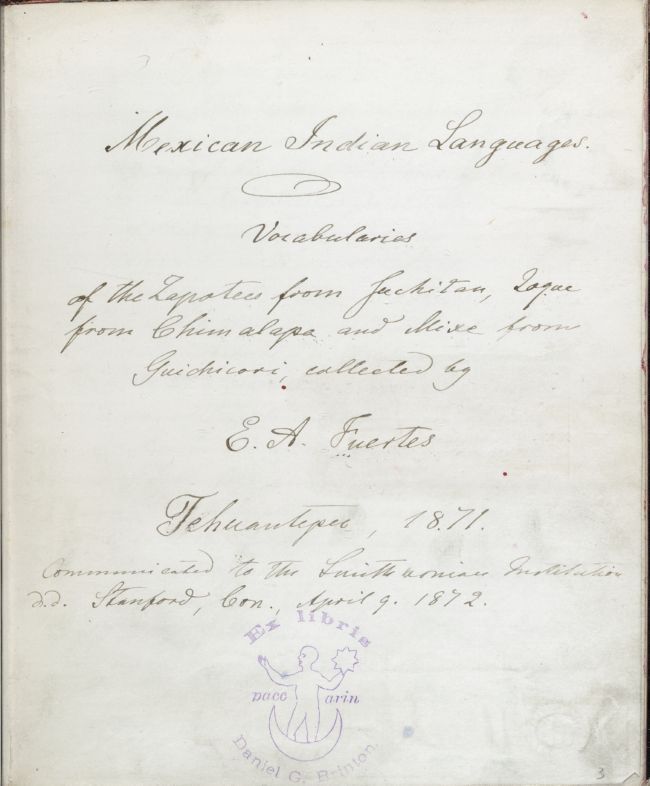 Mexican Indian Languages.
Vocabularies
of the Zapotecs from Juchitan, Zoque
from Chimalapa and Mixe from
Guichicovi, collected by
E. A. Fuertes
Tehuantepec, 1871.
Communicated to the Smithsonian Institution
d.d. Stanford, Con., April 9. 1872.
Ex libris
pace arin
Daniel G. Brinton
3